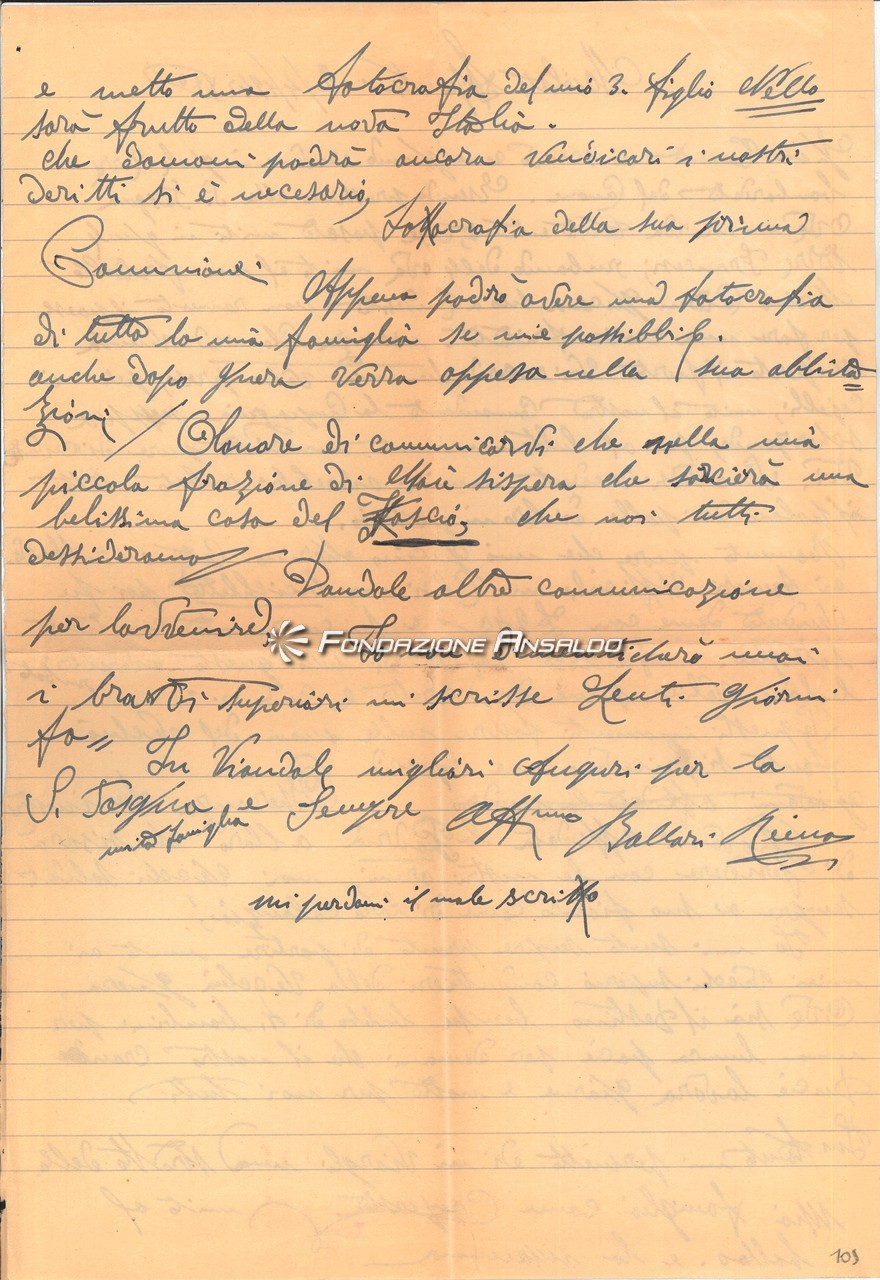 e metto una fotocrafia del mio 3. figlio Nello
sarà frutto della nova Italia.
che domani podrà ancora vendicari i nostri
deritti si è necesario,
Fottocrafia della sua prima
Comunione.
Appena podrò avere una fotocrafia
di tutta la mià famiglia se mie possibbile.
anche dopo guera verra appesa nella sua abbita
zioni / Olonare di comunicardi che nella mià
piccola frazione di sispera che sorcierà una
belissima casa del Fascio, che noi tutti
dessideramo
Dandole altre comunicazione
per lavvenire, Io non dementicherò mai
FONDAZIONE ANSALDO
i bravi superiori mi scrisse giorni
fa„ In Viandole migliori Auguri per la
S. Pasqua e Sempre Affmo Ballari
mità famiglia
mi perdoni il male scritto
103